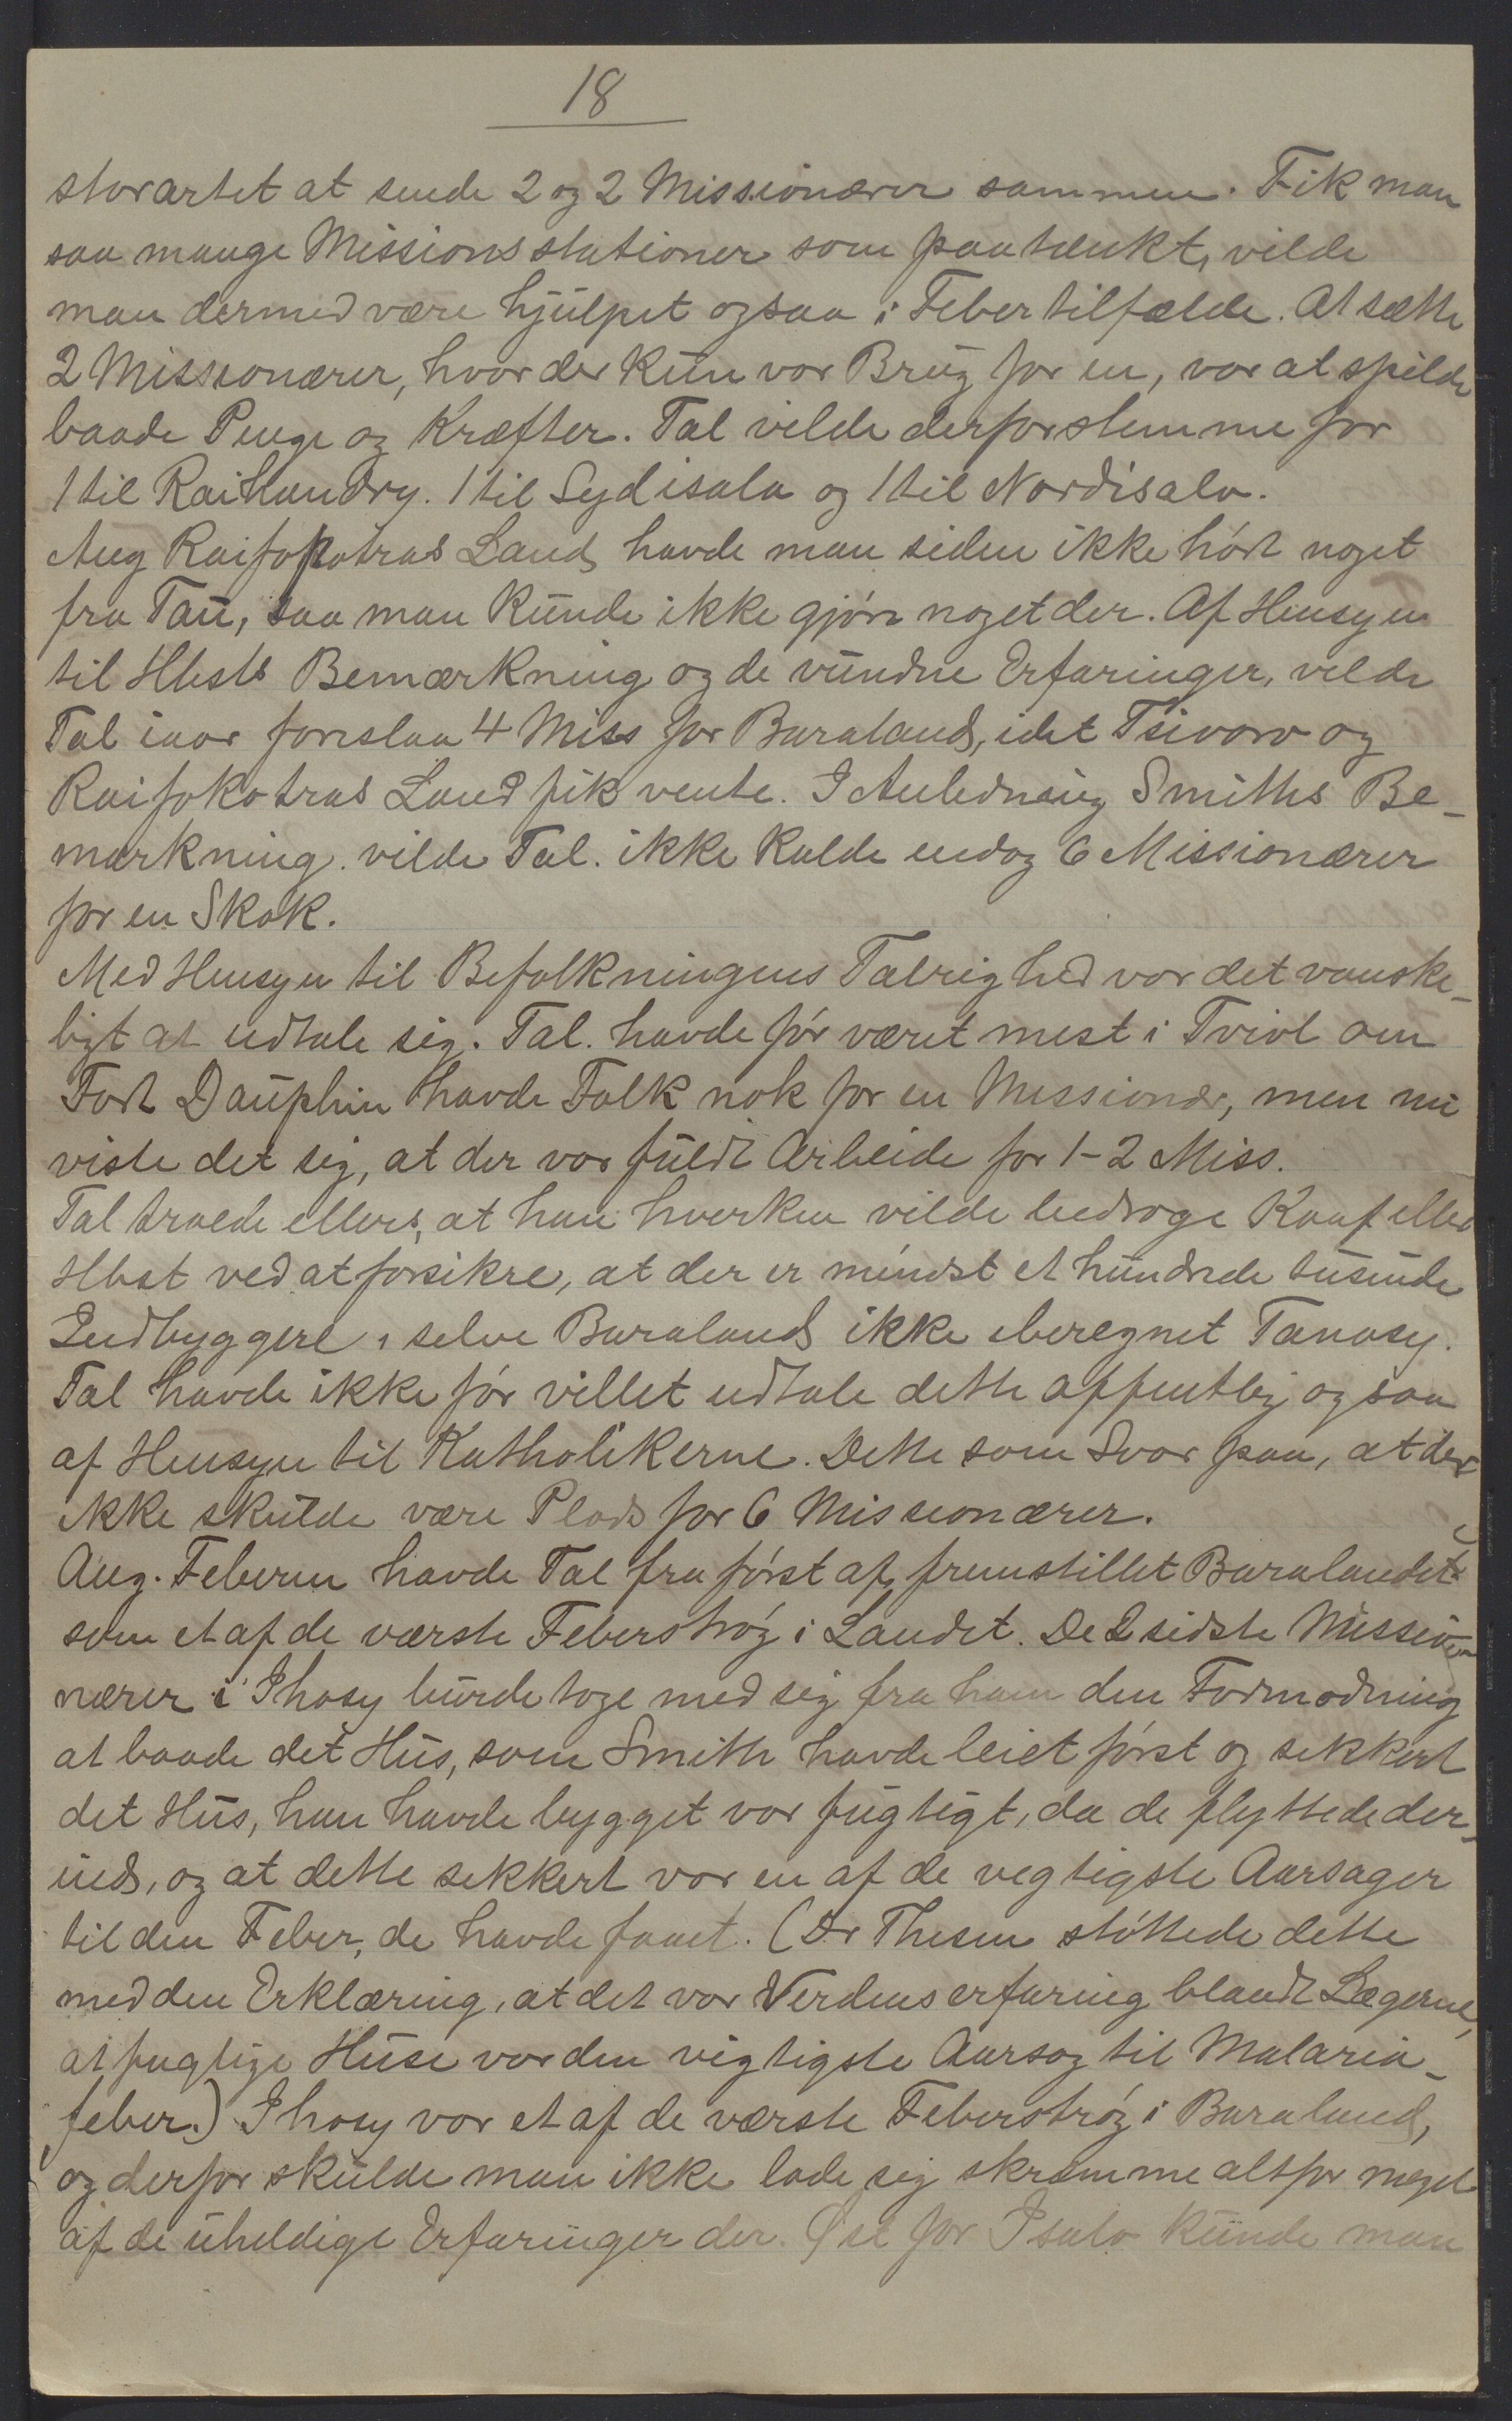 18
storartet at sende 2 og 2 Missionærer sammen. Fik man
saa mange Missionsstationer som paatænkt, vilde
man dermed være hjulpet ogsaa i Febertilfælde. At sætte
2 Missionærer, hvor der kun var Brug for en, var at spilde
baade Penge og Kræfter. Tal vilde derfor stemme for
1 til Raikundry. 1 til Sydisalo og 1 til Nordisalo.
Ang Raifokotras Land havde man siden ikke hørt noget
fra Tau, saa man kunde ikke gjøre noget der. Af Hensyn
til Hbsts Bemærkning og de vundne Erfaringer, vilde
Tal iaar foreslaa 4 Miss for Baraland, idet Tsivoro og
Raifokotras Land fik vente. I Anledning Smiths Be-
mærkning. vilde Tal. ikke kalde endog 6 Missionærer
for en Skok.
Med Hensyn til Befolkningens Talrighed var det vanske-
ligt at udtale sig. Tal. havde før været mest i Tvivl om
Fort Dauphin havde Folk nok for en Missionær, men nu
viste det sig, at der var fuldt Arbeide for 1-2 Miss.
Tal troede ellers, at han hverken vilde bedrage Konf eller
Hbst ved at forsikre, at der er mindst et hundrede tusinde
Indbyggere i selve Baraland ikke iberegnet Tanosy.
Tal havde ikke før villet udtale dette offentlig ogsaa
af Hensyn til Katholikerne. Dette som Svar paa, at der
ikke skulde være Plads for 6 Missionærer.
Ang. Feberen havde Tal fra først af fremstillet Baralandet
som et af de værste Feberstrøg i Landet. De 2 sidste Missio-
nærer i Ihosy burde tage med sig fra ham den Formodning
at baade det Hus, som Smith havde leiet først og sikkert
det Hus, han havde bygget var fugtigt, da de flyttede der-
ind, og at dette sikkert var en af de vegtigste Aarsager
til den Feber, de havde faaet. (Dr Thesen støttede dette
med den Erklæring, at det var Verdenserfaring blandt Lægerne,
at fugtige Huse var den vigtigste Aarsag til Malaria-
feber.) Ihosy var et af de værste Feberstrøg i Baraland,
og derfor skulde man ikke lade sig skræmme altfor meget
af de uheldige Erfaringer der. Øst for Isalo kunde man